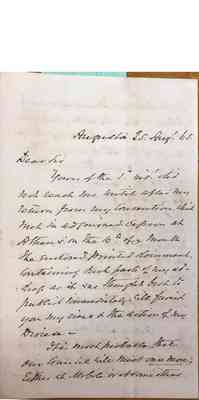 Augusta 25. Augt. 65.
Dear Sir
Yours of the 1st inst. did
not reach me until after my
return from my Convention that
met in adjourned session at
Athens on the 16th of month
The enclosed printed document,
containing such parts of my ad-
dress as it was thought best to
publish immediately, will furnish
you my views & the action of my
Diocese -
It is most probable that
our Council will meet once more,
Either at Mobile or at some other